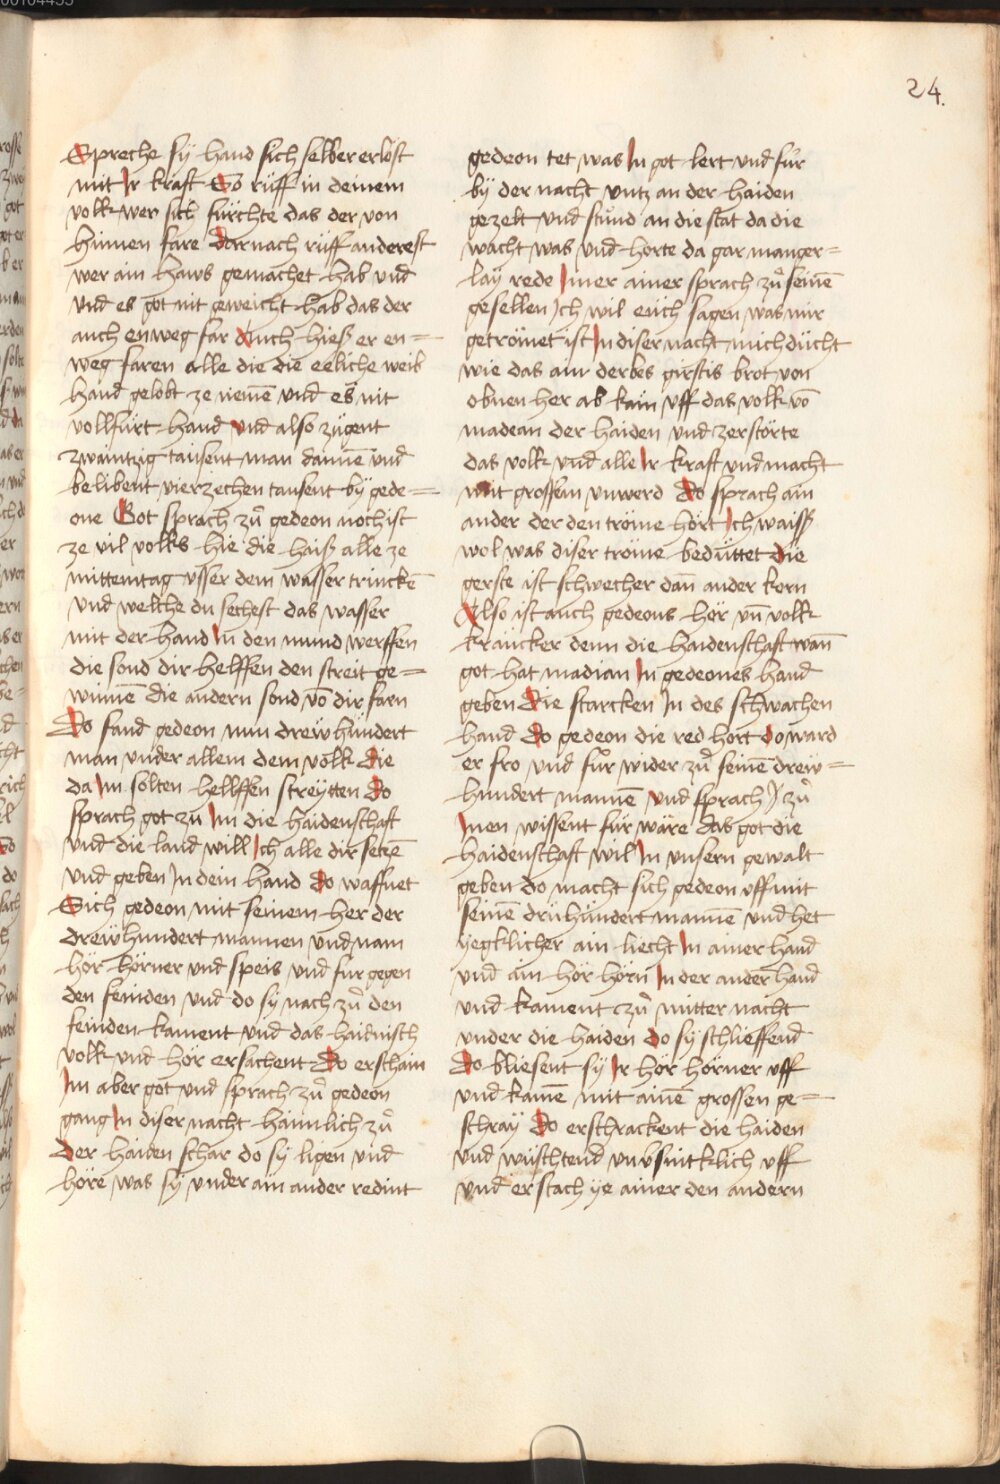 24.
Spreche sy hand sich selber erlöst
mit Ir kraft So rüff in deinem
volk wer sich fürchte das der von
hinnen fare Darnach rüff anderest
wer ain haws gemachet hab und
und es got nit geweicht hab das der
auch enweg far Auch hieß er en=
weg faren alle die die eeliche weib
hand gelobt ze nemē und es nit
vollfürt hand und also zugent
zwaintzig tausent man dannē und
belibent vierzechen tausent by gede=
one Got sprach zů gedeon noch ist
ze vil volks hie die haiß alle ze
mittemtag usser dem wasser trinckē
und welche du sechest das wasser
mit der hand In den mund werffen
die sond dir helffen den streit ge=
winnē die andern sond vō dir farn
Do fand gedeon nun drew hundert
man under allem dem volk die
da Im solten hellffen streytten do
sprach got zů Im die haidenschaft
und die land will Ich alle dir setzē
und geben In dein hand do waffnet
Sich gedeon mit seinem her der
drewhundert mannen und nam
hör hörner und speis und für gegen
den feinden und do sy nach zů den
feinden kament und das haidnisch
volk und hör ersachent Do erschain
Im aber got und sprach zů gedeon
gang In diser nacht haimlich zů
der haiden schar do sy ligen und
höre was sy under ain ander redint
gedeon tet was In got lert und fůr
by der nacht untz an der haiden
gezelt und stůnd an die stat da die
wacht was und horte da gar manger=
lay rede Imer ainer sprach zů seinē
gesellen Ich wil euch sagen was mir
getrömet ist In diser nacht mich dücht
wie das ain derbes girstis brot von
obnen her ab kam uff das volk vō
madean der haiden und zerstörte
das volk und alle Ir kraft und macht
mit grossem unwerd Do sprach ain
ander der den tröme hört Ich waiss
wol was diser tröme bedüttet die
gerste ist schwecher dañ ander korn
Also ist auch gedeons hör uñ volk
kräncker denn die haidenschaft wañ
got hat madian In gedeones hand
geben Die starcken In des schwachen
hand do gedeon die red hort do ward
er fro und fůr wider zů seinē drew=
hundert mannē und sprach zů
Inen wissent für wäre das got die
haidenschaft wil In unsern gewalt
geben do macht sich gedeon uff mit
seinē drühundert mannē und het
yegklicher ain liecht In ainer hand
und ain hör horn In der ander hand
und kament zů mitter nacht
under die haiden do sy schlieffend
Do bliesent sy Ir hör hörner uff
und kamē mit ainē grossen ge=
schray Do erschrackent die haiden
und wüschtend uff
und erstach ye ainer den andern